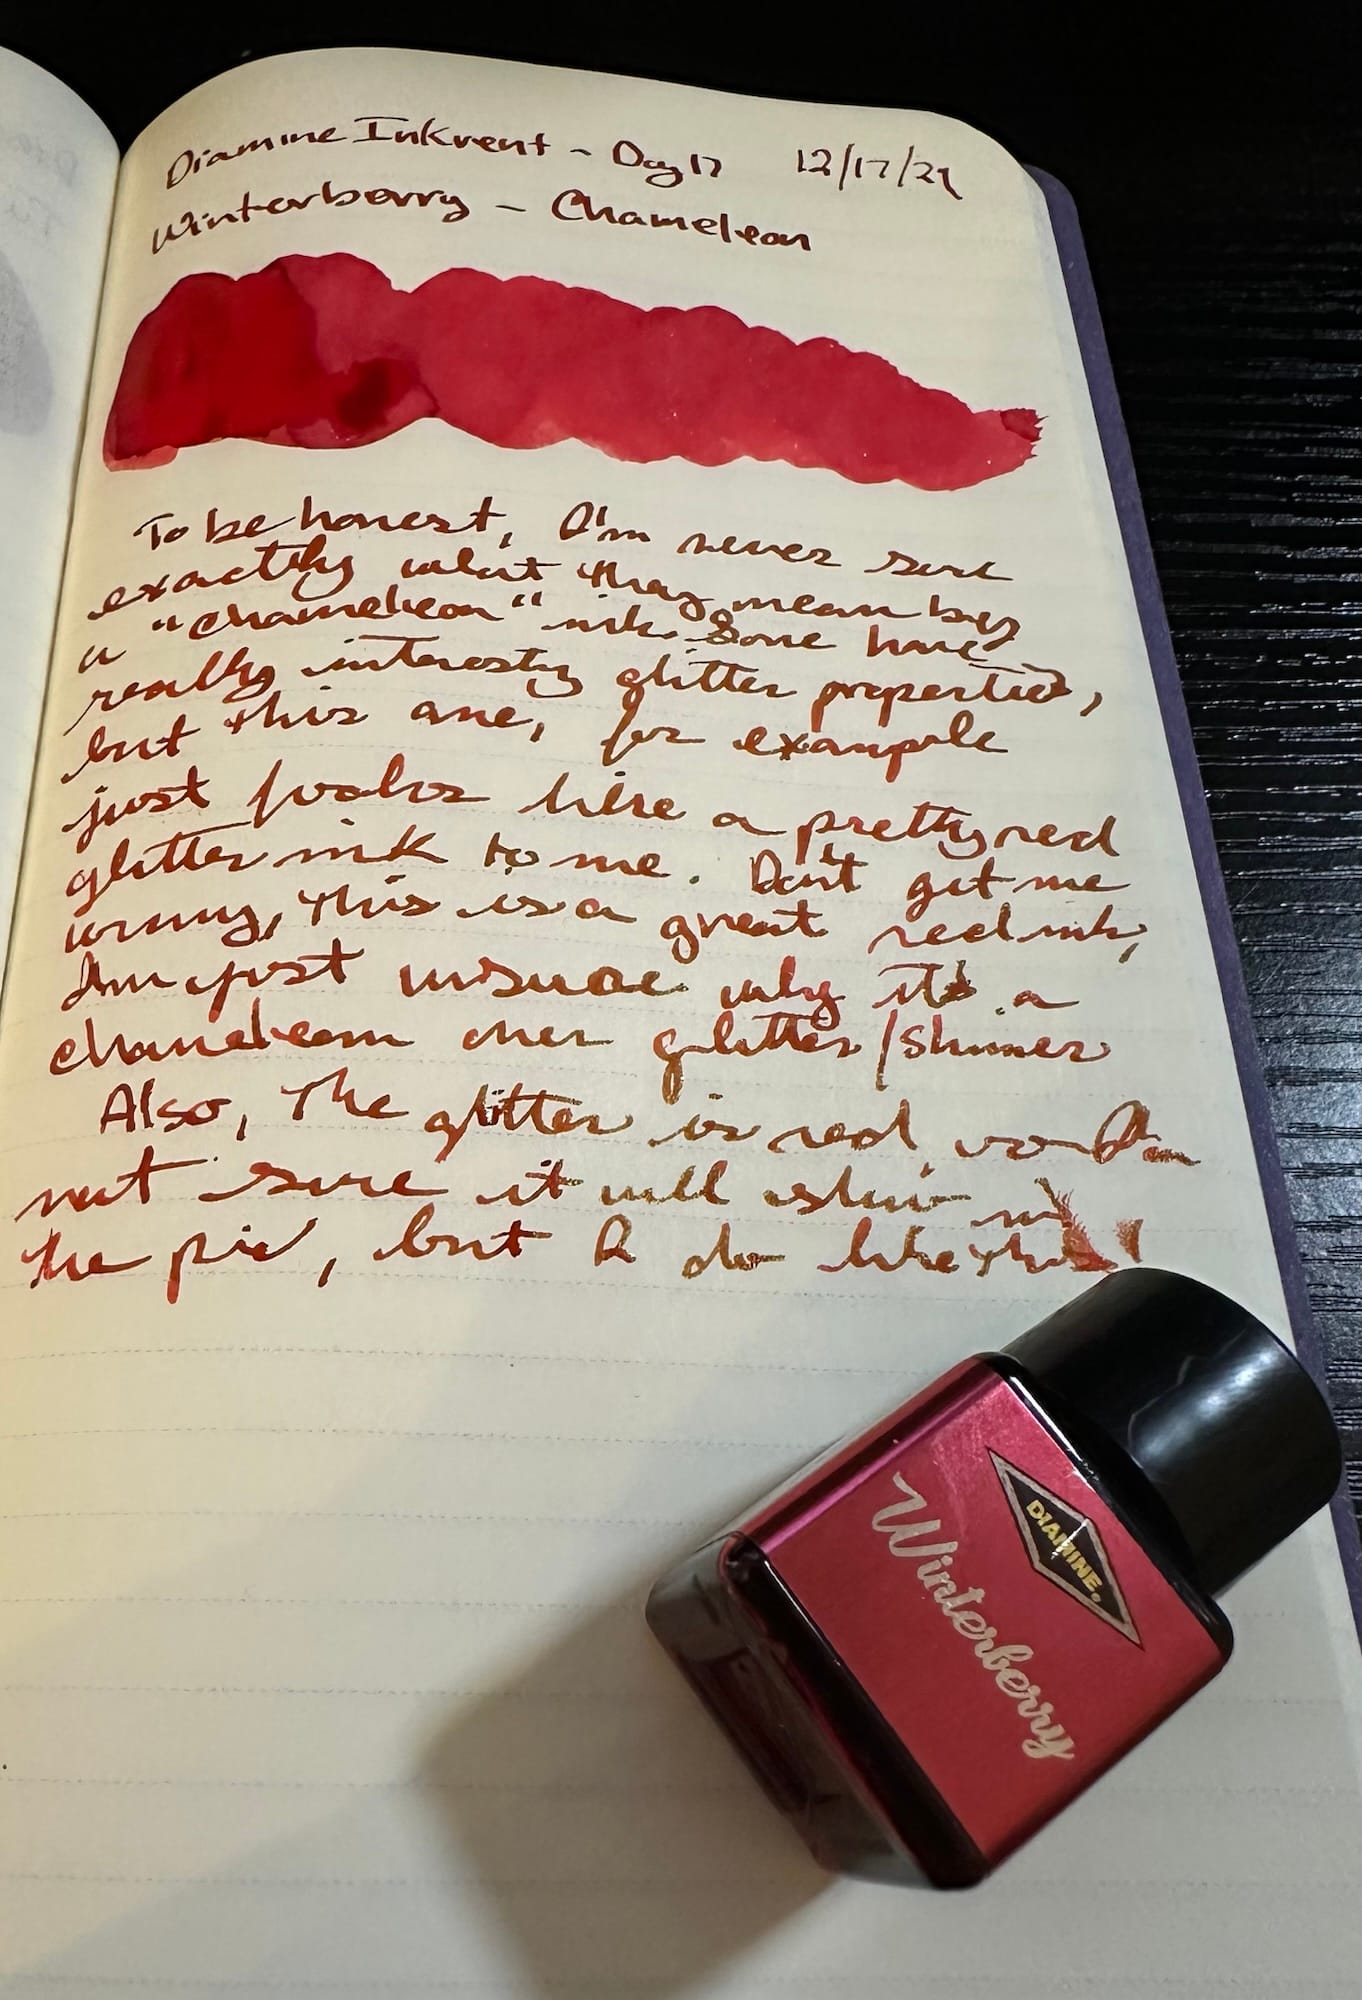 Diamine Inkvent - Day 17 12/17/21
Winterberry - Chameleon
To be honest, I'm never sure
exactly what they mean by
a "chameleon" ink. Some have
really interesting glitter properties,
but this one, for example
just looks like a pretty red
glitter ink to me. Don't get me
wrong, this is a great red ink,
I'm just unsure why it's a
chameleon over glitter/shimmer
Also, the glitter is red, so I'm
not sure it will show in
the pic, but I do like this!
DIAMINE.
Winterberry